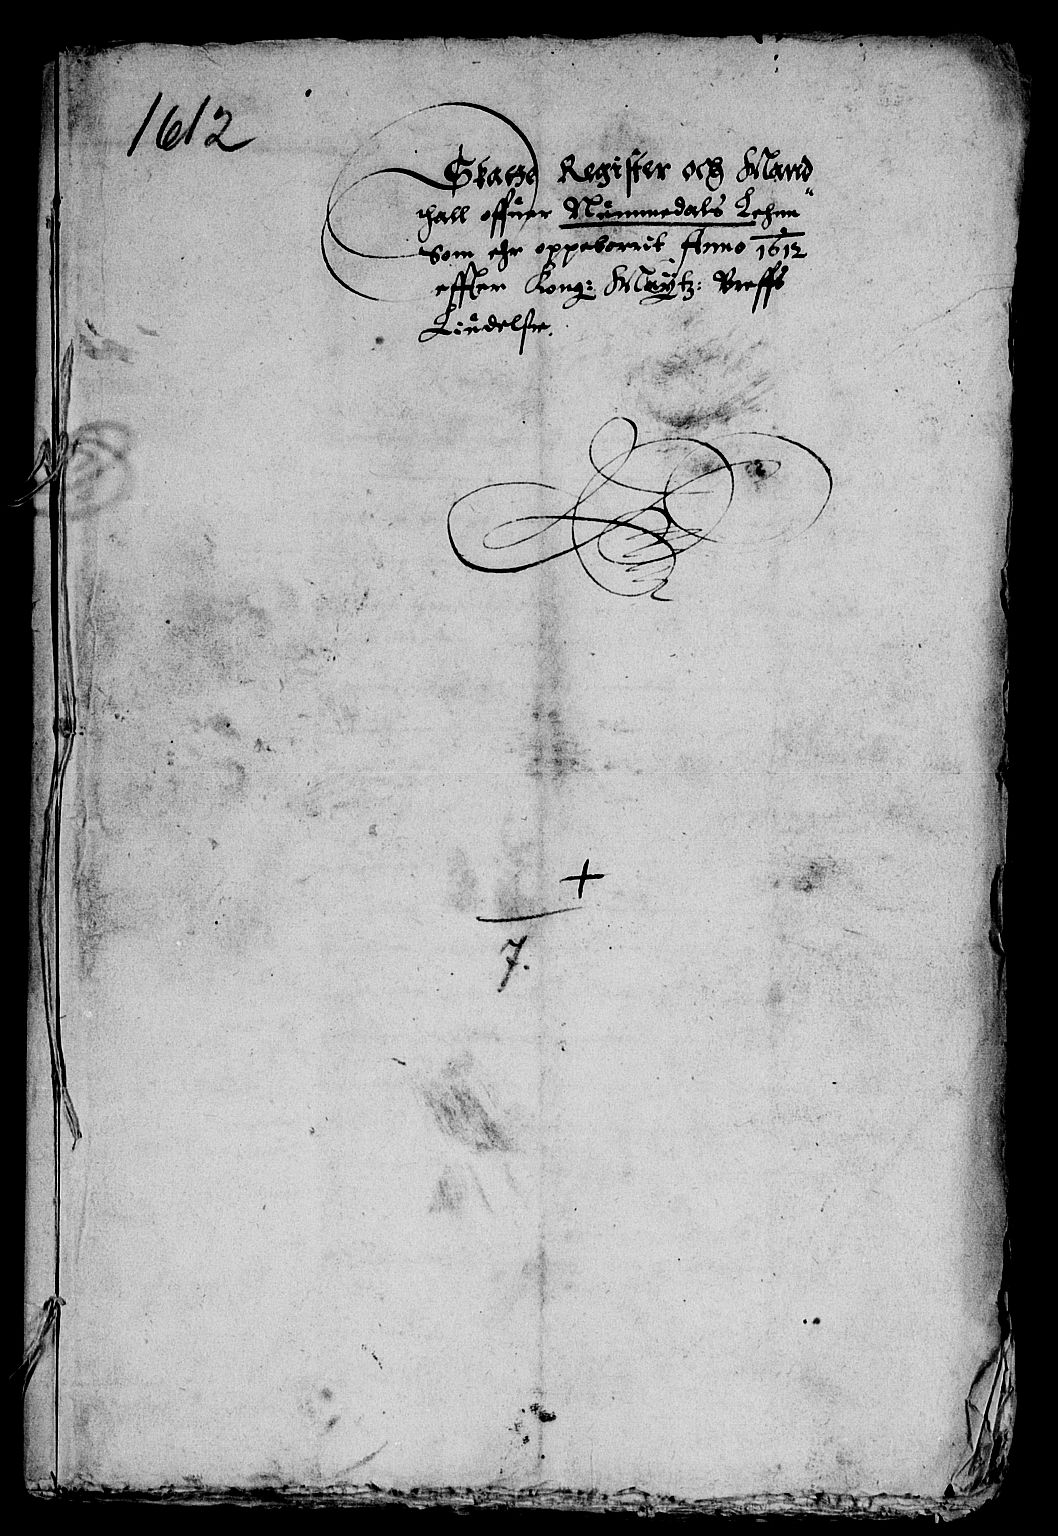 1612
Skatte Register och Mand
thall offuer Nummedals Lehnn
Som ehr oppeborrit Anno 1612
effter Kong: Maÿtz: Breffs
Liudelsse.
+
7.